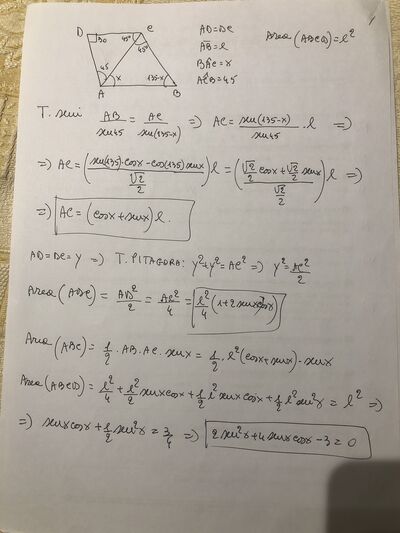 D C
90 45° 45°
45 x 135-x
A B
AD=DC
AB=l
BÂC=x
AĈB=45
Area (ABCD)=l²
T. seni AB/sen45 = AC/sen(135-x) => AC= sen(135-x)/sen45 · l =>
=> AC=((sen(135)·cosx-cos(135)senx)/(√2/2)) l=((√2/2 cosx+√2/2 senx)/(√2/2)) l =>
=> AC=(cosx+senx) l.
AD=DC=y => T. PITAGORA: y²+y²=AC² => y²=AC²/2
Area (ADC)= AD²/2 = AC²/4 = l²/4 (1+2senxcosx)
Area (ABC)= 1/2 · AB·AC·senx= 1/2 · l²(cosx+senx)·senx
Area (ABCD)= l²/4 + l²/2 senxcosx+ 1/2 l² senxcosx+ 1/2 l² sen²x = l² =>
=> senxcosx+ 1/2 sen²x = 3/4 => 2sen²x+4senxcosx-3=0